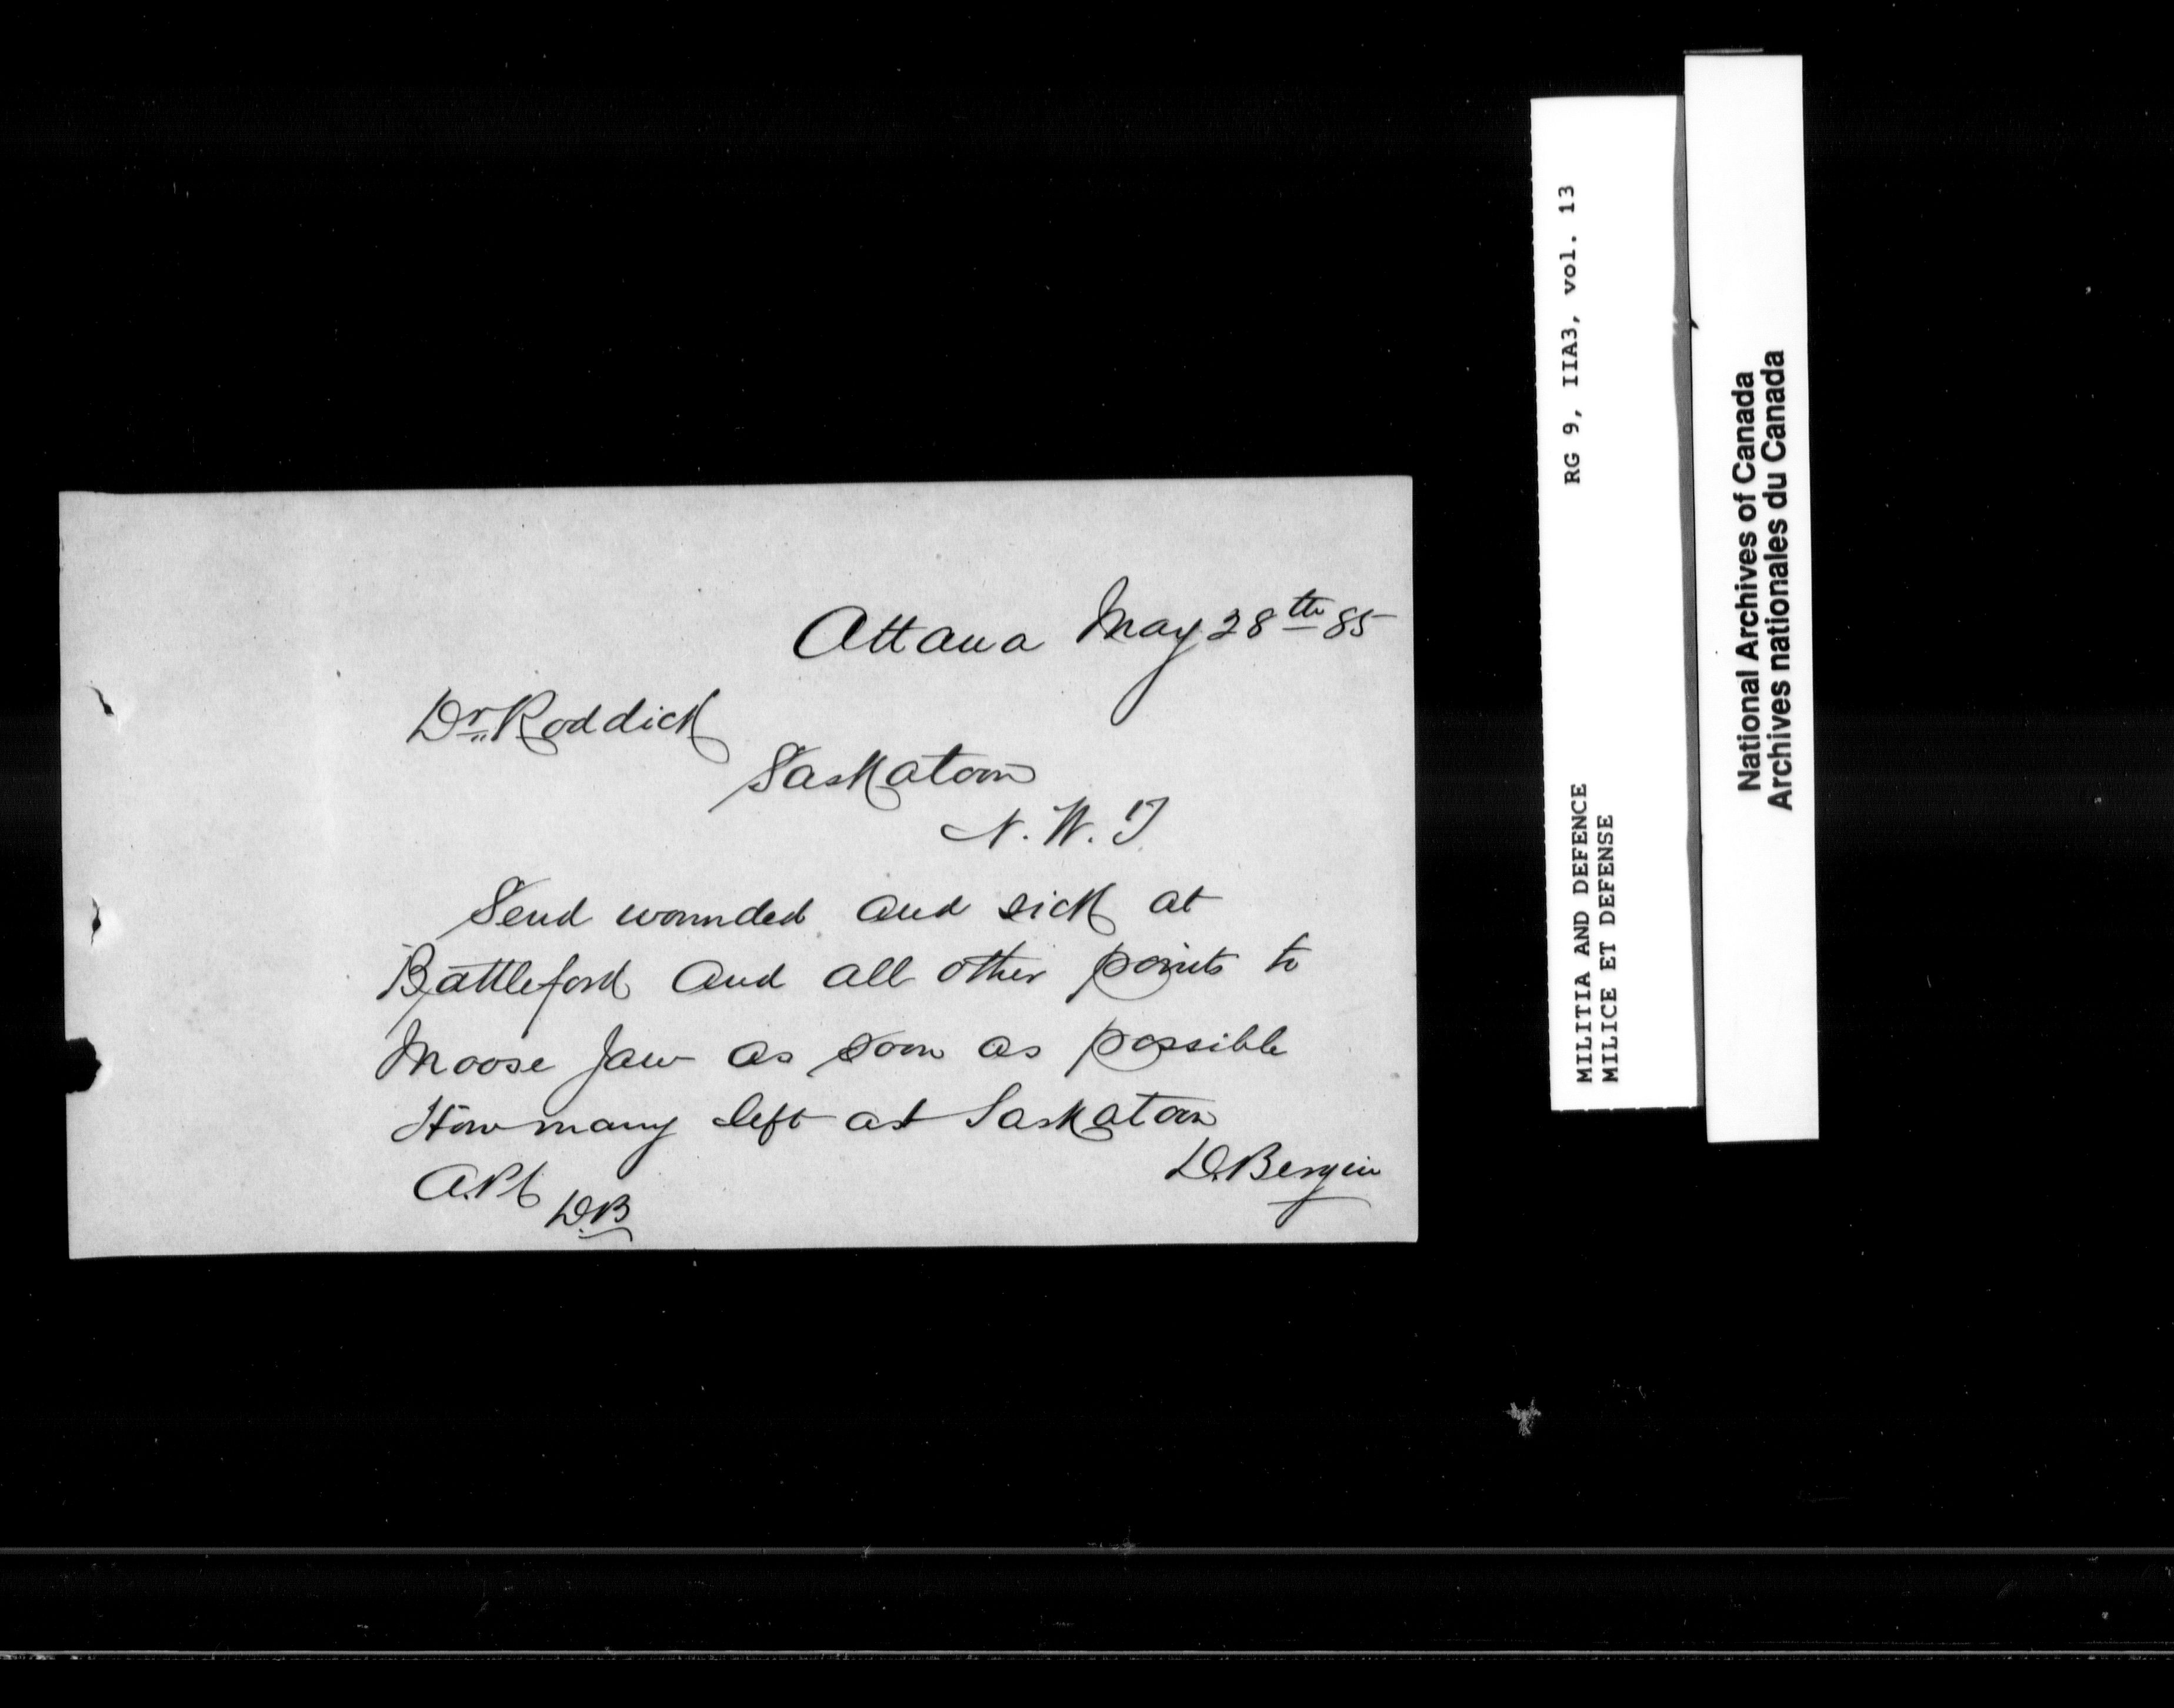 Ottawa May 28th 85
Dr. Roddick
Saskatoon
N. W. T
Send wounded and sick at
Battleford and all other points to
Moose Jaw as soon as possible
How many left at Saskatoon
D. Bergin
D.B
RG 9, IIA3, vol. 13
MILITIA AND DEFENCE
MILICE ET DEFENSE
National Archives of Canada
Archives nationales du Canada